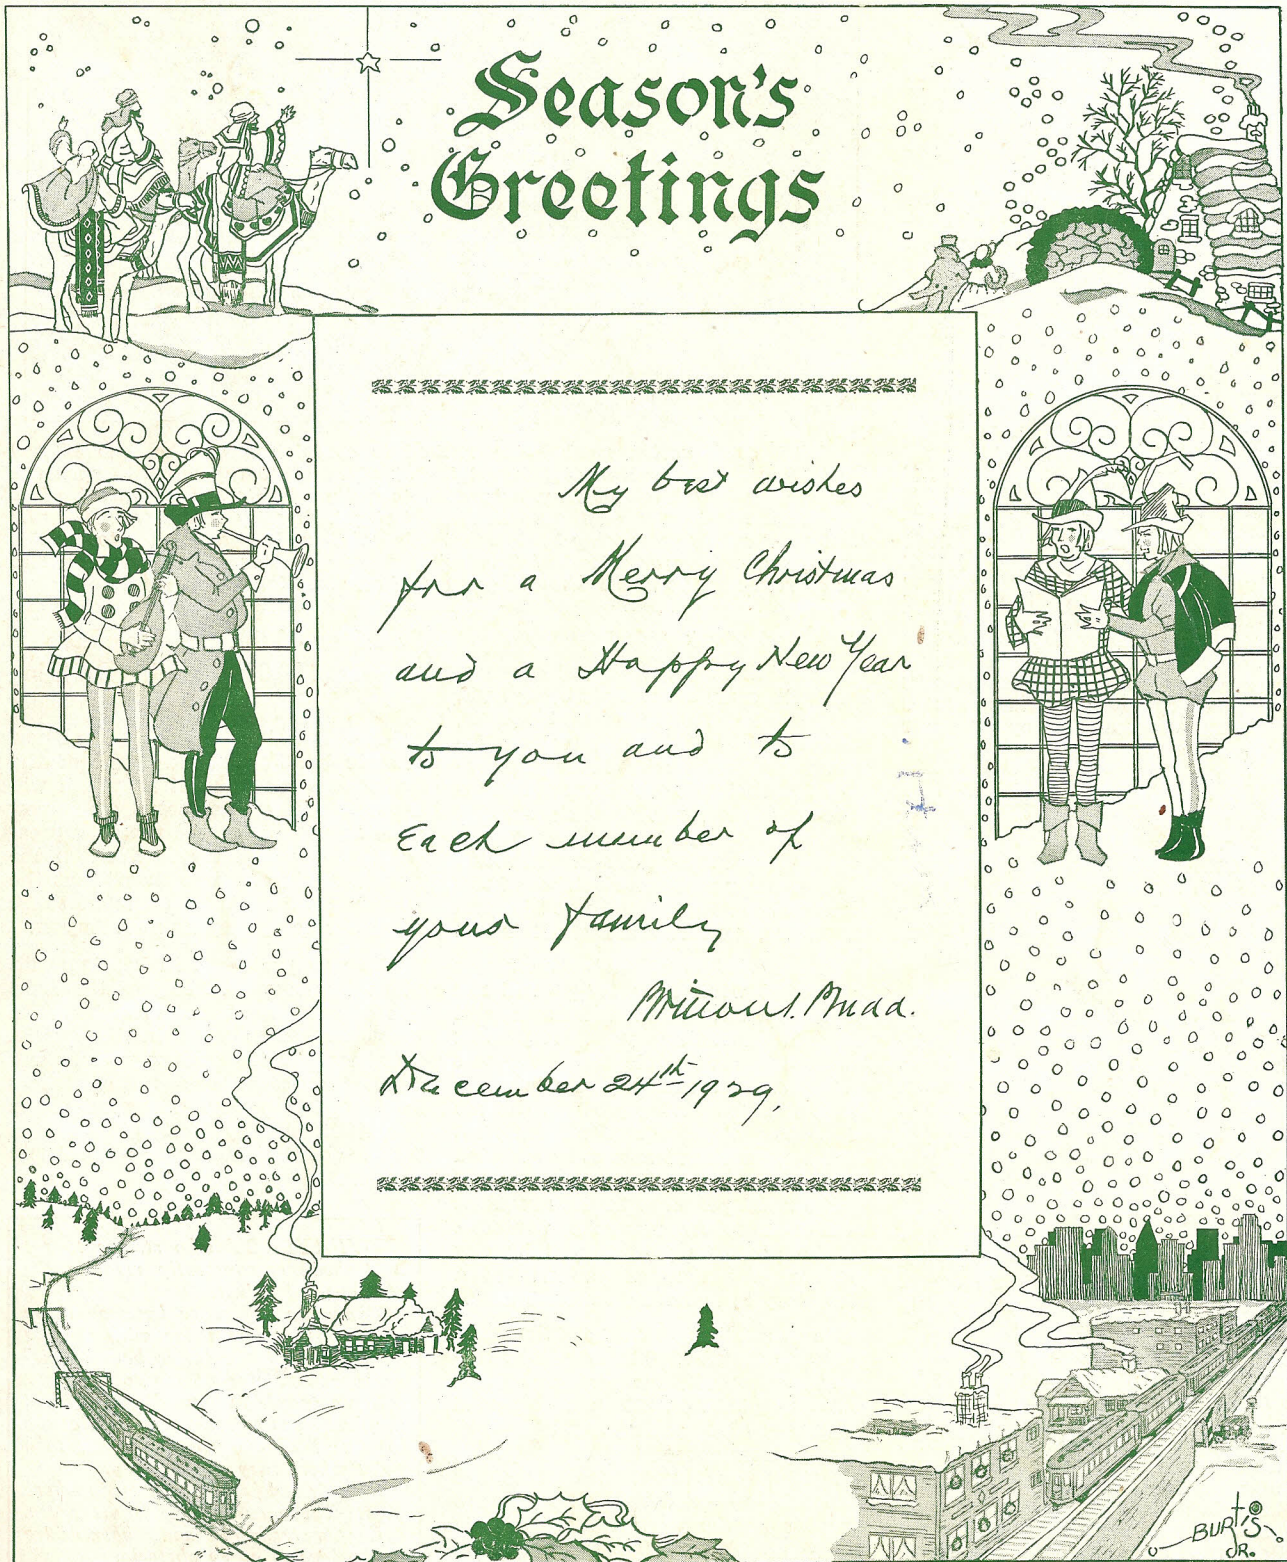 Season's
Greetings
My best wishes
for a Merry Christmas
and a Happy New Year
to you and to
Each member of
your family
Britton I. Budd.
December 24th 1929.
BURTIS
JR.